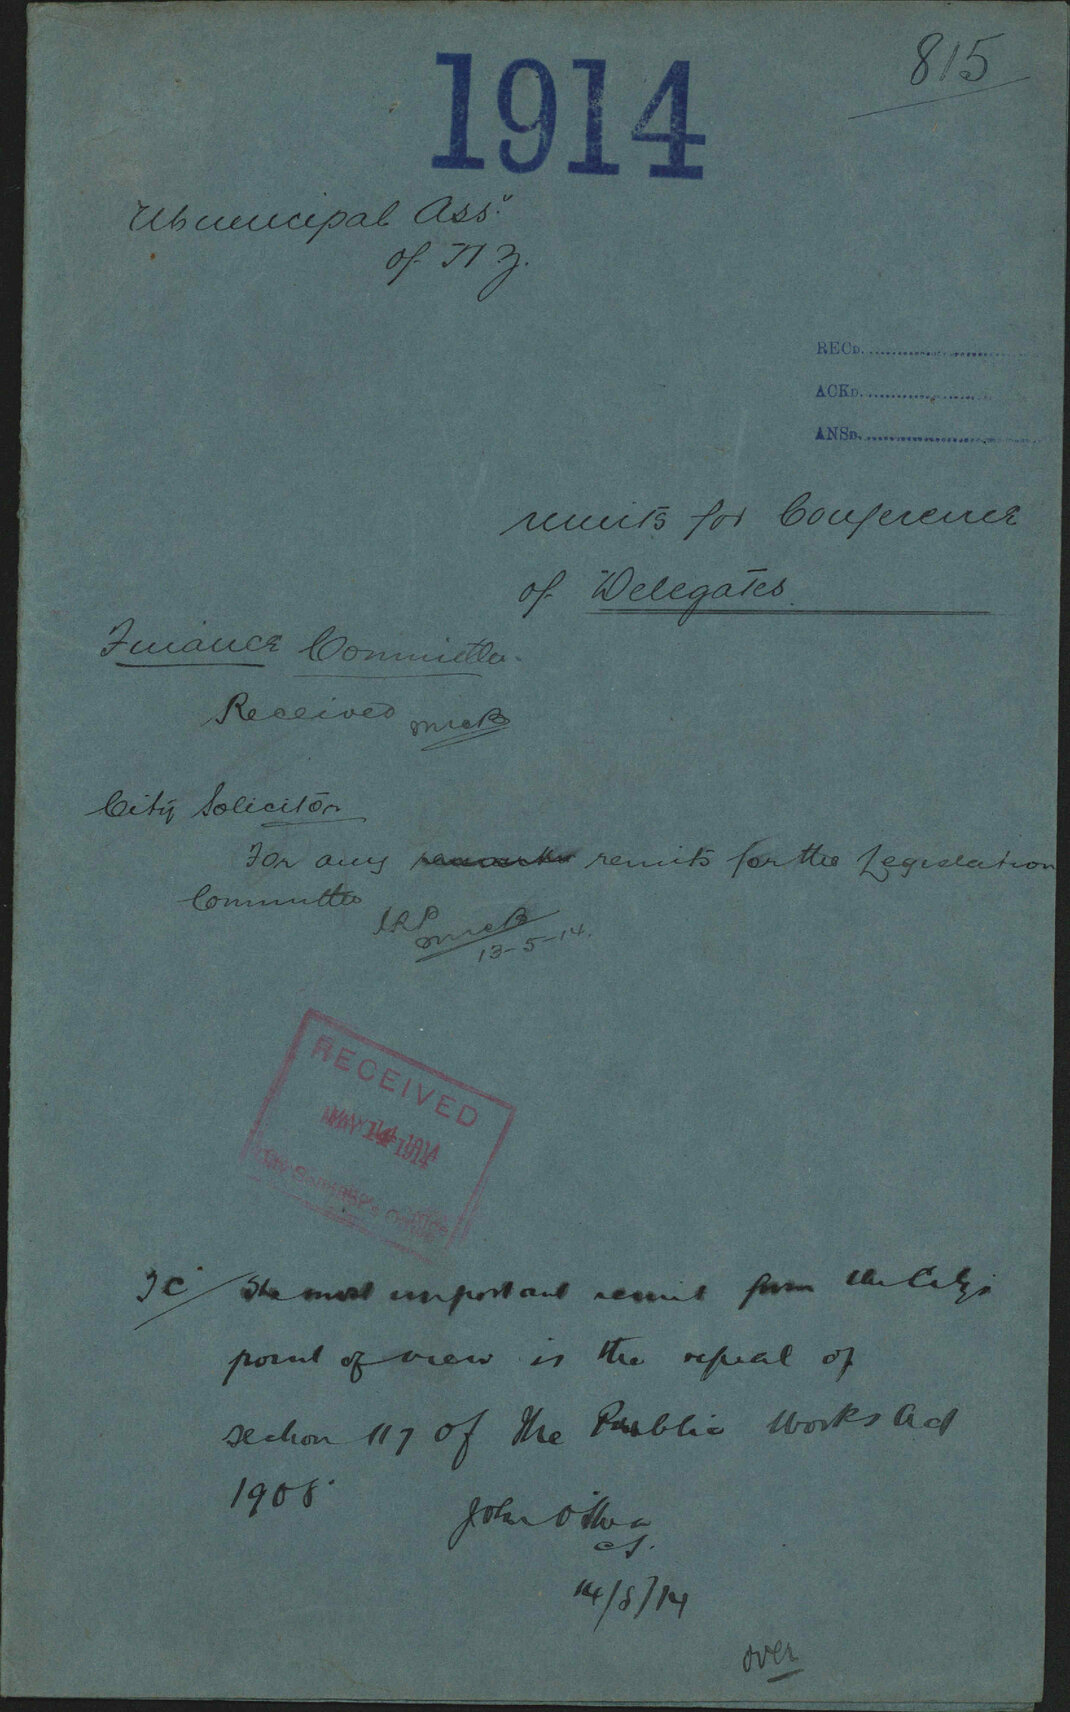 815
1914
Municipal Assn
of N Z.
RECD.
ACKD.
ANSD.
remits for Conference
of Delegates
Finance Committee.
Received
City Solicitor
For any remits for the Legislation
Committee
13-5-14.
RECEIVED
MAY 14 1914
City Solicitor's Office
The most important remit from the City's
point of view is the repeal of
section 117 of the Public Works Act
1908
John O'Shea
C.S.
14/5/14
over